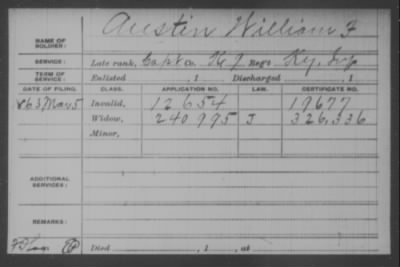 Austin William F
NAME OF SOLDIER:
SERVICE: Late rank, Capt Co. K, 7 Reg't Ky. Inf
TERM OF SERVICE: Enlisted , 1 Discharged , 1
DATE OF FILING. CLASS. APPLICATION NO. LAW. CERTIFICATE NO.
863 Mar 5 Invalid, 12654 19677
Widow, 240995 J 326,336
Minor,
ADDITIONAL SERVICES:
REMARKS:
Died , 1 , at